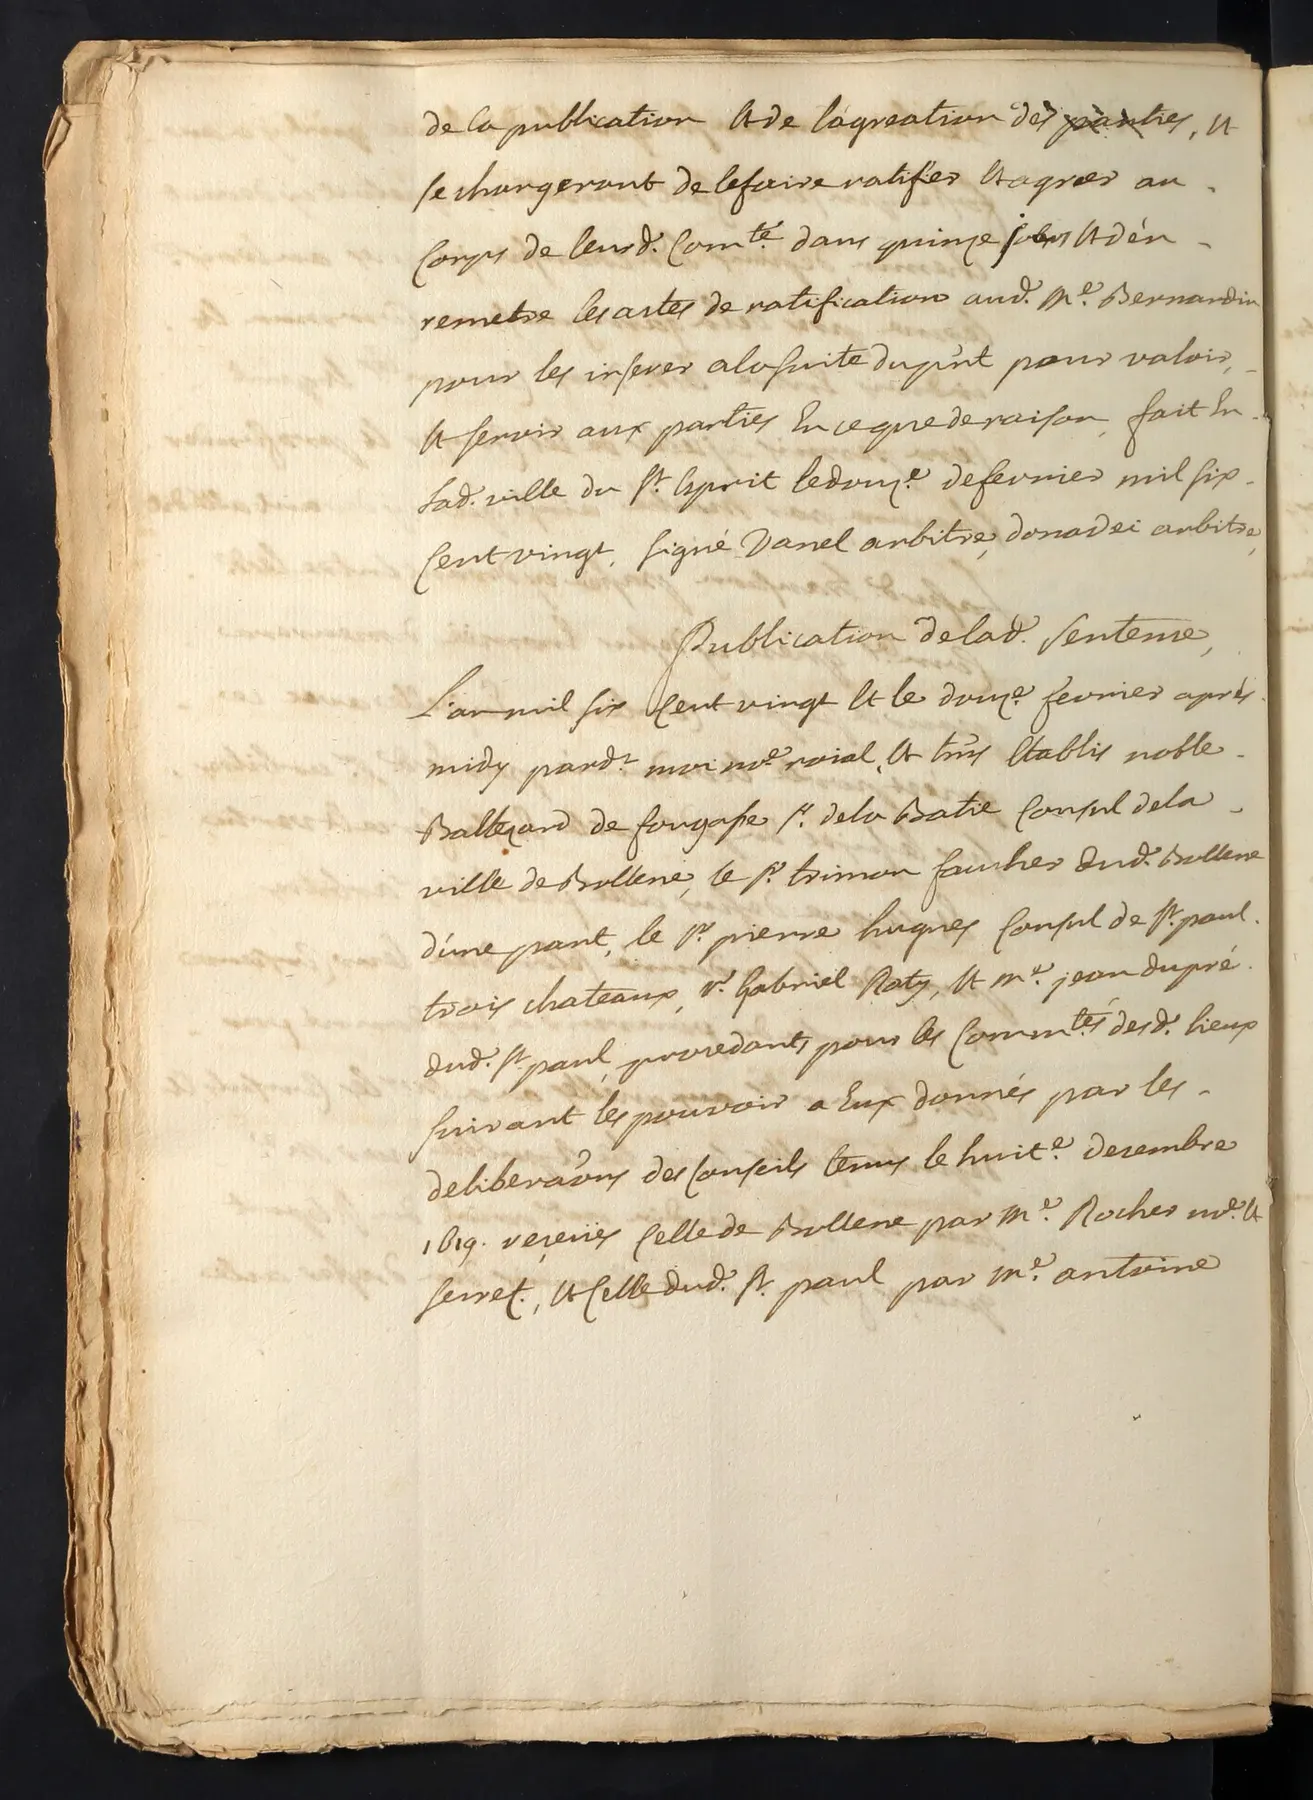 de la publication et de lágreation des parties, et
se chargeront de le faire ratifier et agreer au
corps de leursd. Com.té dans quinze jours et d'én
remetre les actes de ratification aud. M.e Bernardin
pour les inserer a la suite du p'nt pour valoir,
et servir aux parties En ce que de raison, fait En
lad. ville du St. Esprit le douz.e de fevrier mil six
Cent vingt, signé Danel arbitre, donadei arbitre,
Publication de lad. sentence,
L'an mil six Cent vingt et le douz.e fevrier aprés
midy pard.t moi no.e roial, et tms Etablis noble
Baltezard de fougasse sr. de la Batie Consul de la
ville de Bollene, le sr. trimon faucher dud. Bollene
d'une part, le sr. pierre hugues Consul de st. paul
trois chateaux, sr. Gabriel Raty, et m.e jean dupré
dud. st. paul, procedants pour les Comm.tés desd. lieux
suivant les pouvoir a Eux donnés par les
deliberãons des Conseils tenus le huit.e decembre
1619. receües Celle de Bollene par M.e Rocher no.e et
secret., et Celle dud. st. paul par m.e antoine